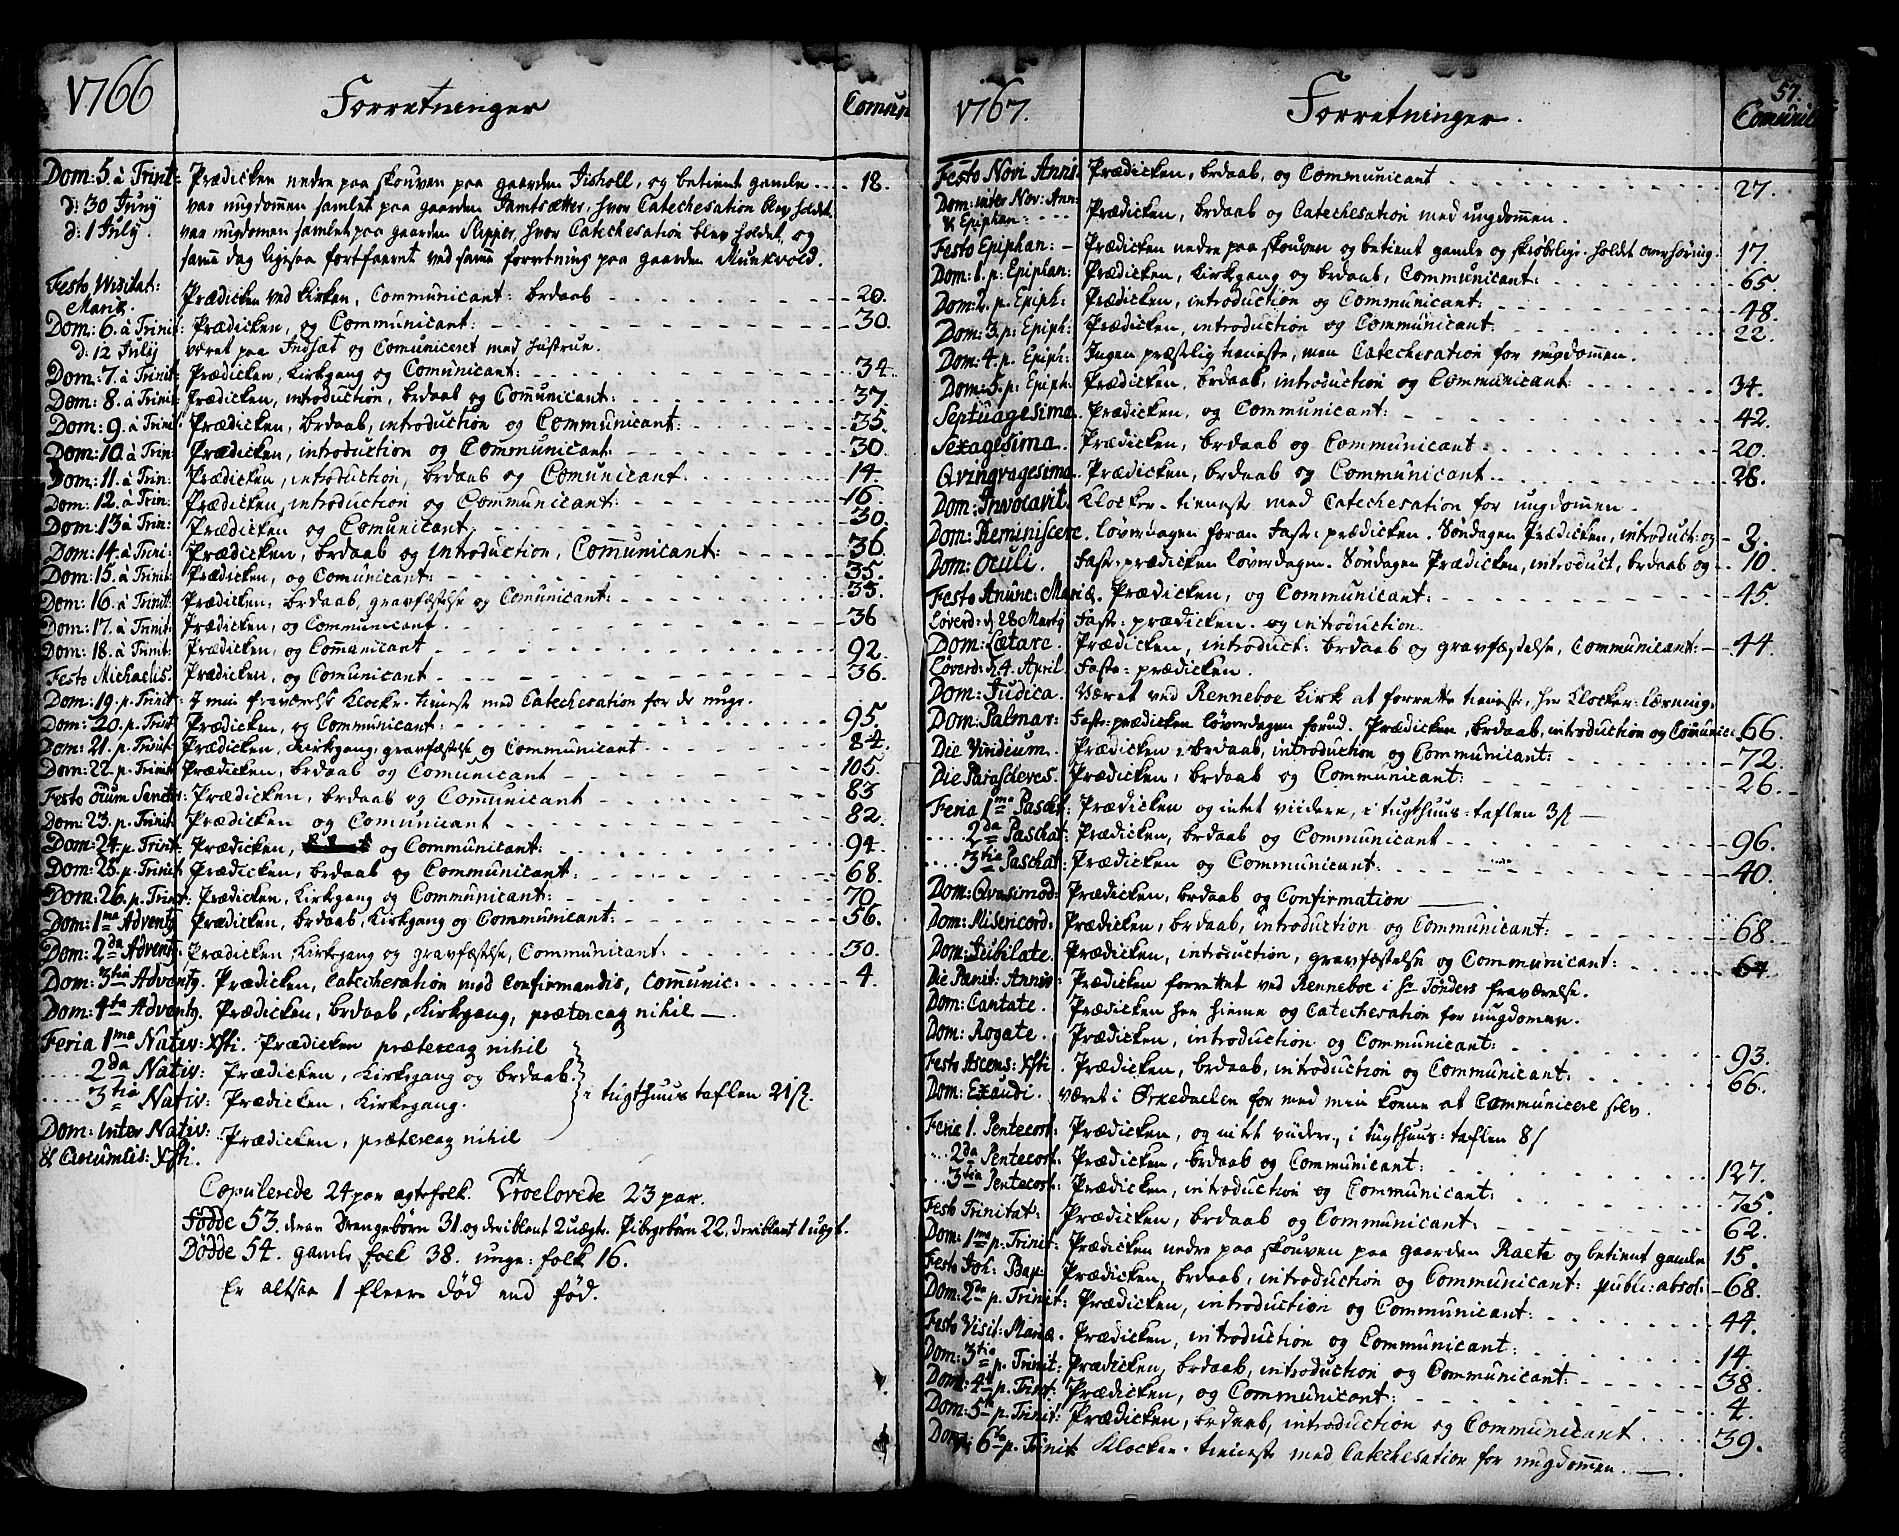 1766 Forretninger Comun
Dom: 5. à Trinit: Prædicken nedre paa skouven paa gaarden Jisholl, og betient gamle . . . 18.
d: 30 Juny var ungdommen samlet paa gaarden Jamtsætter, hvor Catechesation blev holdet
d: 1 July. var ungdomen samlet paa gaarden Slipper, hvor Catechesation blev holdet, og
samme dag ligesaa fortfaeret ved samme forretning paa gaarden Munkvold.
Festo Visitat:
Mariæ Prædicken ved Kirken, Communicant: brdaab - - - 20.
Dom: 6. à Trinit: Prædicken, og Communicant: - - - 30.
d: 12 July været paa Indsæt og Comuniceret med hustrue.
Dom: 7. à Trinit: Prædicken, Kirkgang og Comunicant: - - - 34.
Dom: 8. à Trinit Prædicken, introduction, brdaab og Communicant: - - - 37.
Dom: 9. à Trinit Prædicken, brdaab, introduction og Communicant: - - - 35.
Dom: 10. à Trin: Prædicken, introduction og Communicant. - - - 30
Dom: 11. à Trin: Prædicken, introduction, brdaab og Comunicant. - - - 14
Dom: 12. à Trin: Prædicken, introduction og Communicant: - - - 16
Dom: 13 à Trin: Prædicken og Comunicant. - - - 30.
Dom: 14. à Trini: Prædicken, brdaab og introduction, Communicant: - - - 36.
Dom: 15. à Trinit: Prædicken, og Comunicant: - - - 35.
Dom: 16. à Trinit: Prædicken, brdaab, gravfæstelse og Comunicant: - - - 35.
Dom: 17. à Trinit: Prædicken, og Communicant. - - - 36
Dom: 18. à Trinit: Prædicken, og Communicant - - - 92.
Festo Michaelis. Prædicken, og Comunicant - - - 36.
Dom: 19. p. Trinit: I min fraværelse Klocke-tieneste med Catechesation for de unge.
Dom: 20. p. Trinit Prædicken, og Communicant: - - - 95.
Dom: 21. p. Trinit. Prædicken, Kirkgang, gravfæstelse og Communicant - - - 84.
Dom: 22. p. Trinit Prædicken, brdaab og Comunicant - - - 105.
Festo Oium Sanctor: Prædicken, brdaab og Comunicant - - - 83
Dom: 23. p. Trinit. Prædicken og Comunicant - - - 82.
Dom: 24. p. Trinit. Prædicken, og Communicant: - - - 94.
Dom: 25. p. Trinit Prædicken, brdaab og Communicant: - - - 68.
Dom: 26. p. Trinit: Prædicken, Kirkgang og Communicant: - - - 70
Dom: 1ma Adventg Prædicken, brdaab, Kirkgang og Communicant: - - - 56.
Dom: 2da Advent. Prædicken, Kirkgang og gravfæstelse, Communicant: - - - 30.
Dom: 3tia Adventg. Prædicken, Catechesation med Confirmandis, Comunic: - - - 4.
Dom: 4ta Adventg. Prædicken, brdaab, Kirkgang, prætereag nihil —.
Feria 1ma Nativ: Xsti. Prædicken prætereag nihil
. . . . 2da Nativ: Prædicken, Kirkgang og brdaab.
. . . . 3tia Nativ: Prædicken, Kirkegang. i tugthuus taflen 21ß.
Dom: inter Nativ:
& Circumcis: Xsti. Prædicken, prætereag nihil
Copulerede 24 par ægtefolk. Troelovede 23 par.
Fødde 53. deraf Drengebørn 31. og deriblent 2 uægte. Pibgebørn 22. deriblent 1 uægt.
Dødde 54. gamle folk 38. unge: folk 16.
Er altsaa 1 fleere død end fød.
57.
1767. Forretninger. Comunic
Festo Novi Anni Prædicken, brdaab, og Communicant - - - 27.
Dom: inter Nov: Ann:
& Epiphan: - - - Prædicken, brdaab og Catechesation med ungdommen.
Festo Epiphan: - Prædicken nedre paa skouven og betient gamle og skrøbelige. holdt overhøring. 17.
Dom: 1. p: Epiphan: Prædicken, Kirkgang og brdaab, Communicant: - - - 65.
Dom: 2. p. Epiph: Prædicken, introduction og Communicant: - - - 48.
Dom: 3. p: Epiph: Prædicken, introduction og Communicant. - - - 22.
Dom: 4. p. Epiph: Ingen præstlig tieneste, men Catechesation for ungdommen.
Dom: 5. p: Epiph: Prædicken, brdaab, introduction og Communicant: - - - 34.
Septuagesima. Prædicken, og Communicant: - - - 42.
Sexagesima. Prædicken, brdaab og Communicant: - - - 20.
Qvinqvagesima. Prædicken, brdaab og Communicant - - - 28.
Dom: Invocavit. Klocker-tieneste med Catechesation for ungdommen.
Dom: Reminiscere. løverdagen foran Faste: prædicken. Søndagen Prædicken, introduct: og - 3.
Dom: Oculi. Faste: prædicken løverdagen. Søndagen Prædicken, introduct, brdaab og - - 10.
Festo Anunc: Mariæ. Prædicken, og Communicant: - - - 45.
Løverd: d 28 Marty Faste: prædicken. og introduction.
Dom: Lætare. Prædicken, introduct: brdaab og gravfæstelse, Communicant: — 44.
Løverd: d. 4. April. Faste: prædicken.
Dom: Judica. Været ved Renneboe Kirk at forrette tieneste, her Klocker: læsning.
Dom: Palmar: Faste: prædicken løverdagen forud. Prædicken, brdaab, introduction og Comunic: 66.
Die Viridium. Prædicken, brdaab, introduction og Communicant: - - - 72.
Die Parasceves. Prædicken, brdaab og Communicant: - - - 26.
Feria 1ma Paschat: Prædicken og intet viidere, i tugthuus: taflen 3ß —
. . . . 2da Paschat: Prædicken, brdaab og Communicant - - - 96.
. . . . 3tia Paschat: Prædicken og Communicant: - - - 40.
Dom: Qvasimod: Prædicken, brdaab og Confirmation —
Dom: Misericord: Prædicken, brdaab, introduction og Communicant: - - - 68.
Dom: Jubilate. Prædicken, introduction, gravfæstelse og Communicant: - - - 64.
Die Pænit: Annis: Prædicken forrettet ved Renneboe i Hr Tønders fraværelse.
Dom: Cantate. Prædicken her hieme og Catechesation for ungdomen.
Dom: Rogate. Prædicken, introduction og Communicant: - - - 93.
Festo Ascens: Xsti. Prædicken, brdaab, introduction og Communicant. - - - 66.
Dom: Exaudi. været i Ørkedaelen for med min kone at Communicere selv.
Feria 1. Pentecost: Prædicken, og intet viidere, i tugthuus: taflen 8ß
. . . 2da Pentecost. Prædicken, brdaab og Communicant: - - - 127.
. . . 3tia Pentecost: Prædicken, introduction og Communicant: - - - 75.
Festo Trinitat: Prædicken, brdaab og Communicant: - - - 62.
Dom: 1ma p. Trinit: Prædicken nedre paa skouven paa gaarden Raete og betient gamle 15.
Festo Joh: Bap: Prædicken, brdaab, introduction og Communicant: public: absol: - 68.
Dom: 2da p. Trinit: Prædicken, introduction og Communicant: - - - 44.
Festo Visit: Mariæ. Prædicken, introduction og Communicant: - - - 14.
Dom: 3tia p. Trinit: Prædicken, brdaab, introduction og Communicant: - - - 38.
Dom: 4ta p. Trinit: Prædicken, og Communicant: - - - 4.
Dom: 5ta p. Trinit: Prædicken, brdaab, introduction og Communicant . . . . 39.
Dom: 6ta p. Trinit: Klocker-tieneste med Catechesation for ungdommen. —.